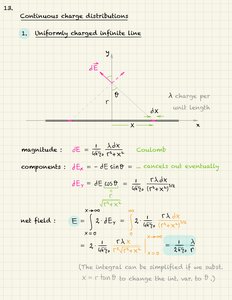 13.
Continuous charge distributions
1. Uniformly charged infinite line
y
dE
θ
r
λ charge per
unit length
dx
x
x
magnitude : dE = 1/4πε₀ λdx/r²+x² Coulomb
components : dEₓ = - dE sinθ = … cancels out eventually
dEᵧ = dE cosθ = 1/4πε₀ rλdx/(r²+x²)^3/2
r/√r²+x²
net field : E = ∫ x=0 x→∞ 2·dEᵧ = ∫ x=0 x→∞ 2· 1/4πε₀ rλdx/(r²+x²)^3/2
= 2· 1/4πε₀ rλx/r²√r²+x² | x=0 x→∞ = 1/2πε₀ λ/r
(The integral can be simplified if we subst.
x = r tanθ to change the int. var. to θ.)